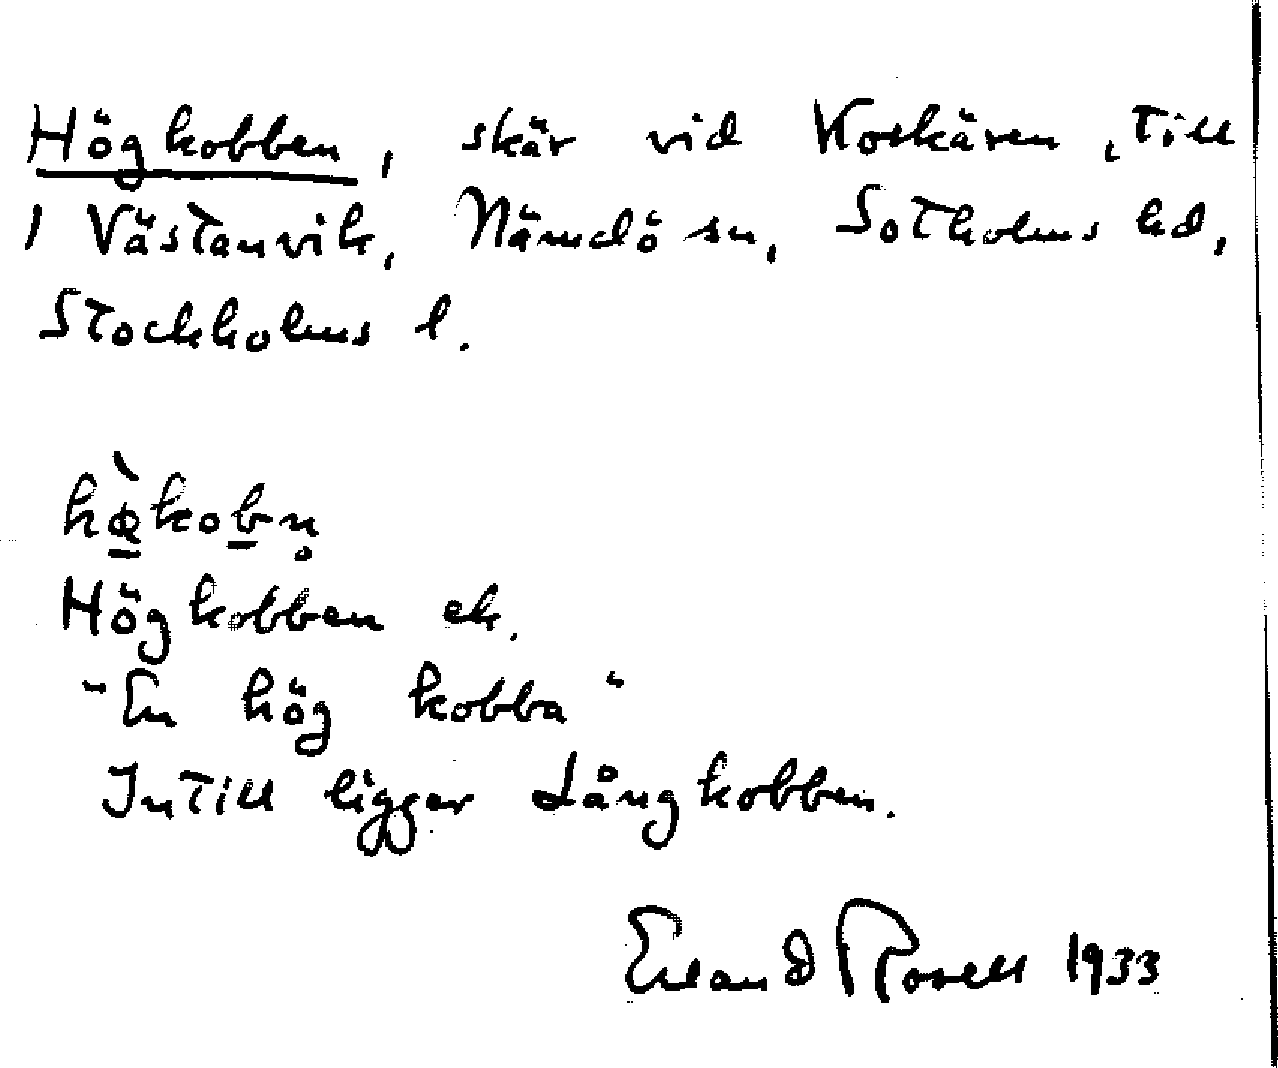 Högkobben, skär vid Korkären, till
1 Västanvik, Nämdö sn, Sotholms hd,
Stockholms l.
hœ̀kobn̥
Högkobben ek.
"En hög kobba"
Intill ligger Långkobben.
Erland Rosell 1933